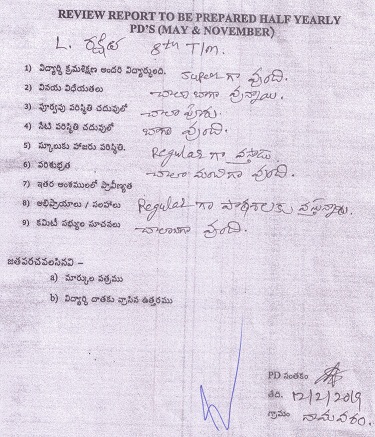 REVIEW REPORT TO BE PREPARED HALF YEARLY
PD'S (MAY & NOVEMBER)
L. రక్షిత 8th T/m.
1) విద్యార్థి క్రమశిక్షణ అందరి విద్యార్థులది. super గా వుంది.
2) వినయ విధేయతలు చాలా బాగా వున్నాయి.
3) పూర్వపు పరిస్థితి చదువులో చాలా పూరు.
4) నేటి పరిస్థితి చదువులో బాగా వుంది.
5) స్కూలుకు హాజరు పరిస్థితి. Regular గా వస్తాడు.
6) పరిశుభ్రత చాలా మంచిగా వుంది.
7) ఇతర అంశములలో ప్రావీణ్యత
8) అభిప్రాయాలు / సలహాలు Regular గా పాఠశాలకు వస్తున్నారు.
9) కమిటీ సభ్యుల సూచనలు చాలాబాగా వుంది.
జతపరచవలసినవి :–
a) మార్కుల పత్రము
b) విద్యార్థి దాతకు వ్రాసిన ఉత్తరము
PD సంతకం
తేది. 12/2/2019
గ్రామం దామవరం.